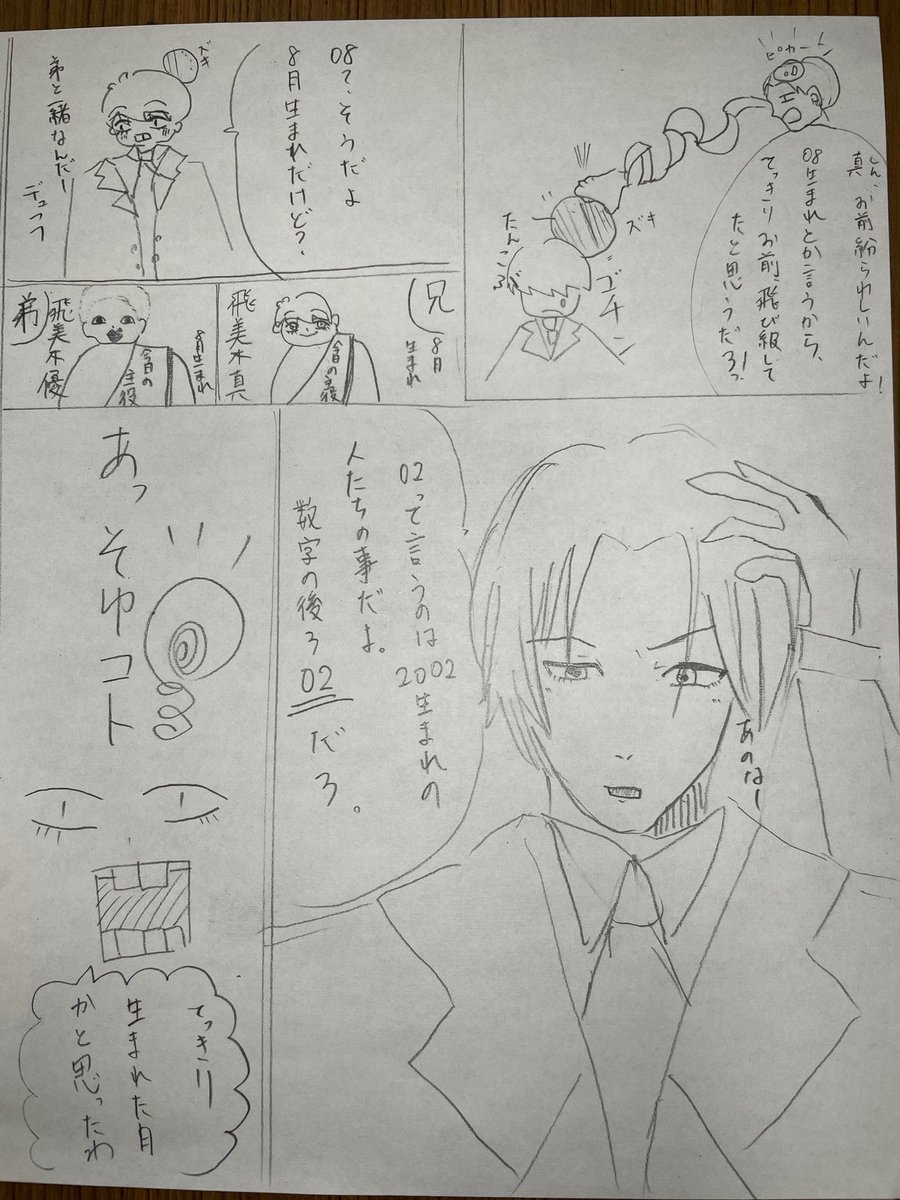 ピカーん
真、お前紛らわしいんだよ!
しん
08生まれとか言うから、
てっきりお前、飛び級して
たと思ううだろ!っ
ズキ
ゴチーン
たんこぶ
08?、そうだよ
8月生まれだけど?
ズキ
弟と一緒なんだー
デュフフ
兄
8月
生まれ
飛美木真
今日の主役
8月生まれ
今日の主役
飛美木優
弟
あのなー
02って言うのは
2002生まれの
人たちの事だよ。
数字の後ろ02だろ。
あっそゆコト
てっきり
生まれた月
かと思ったわ